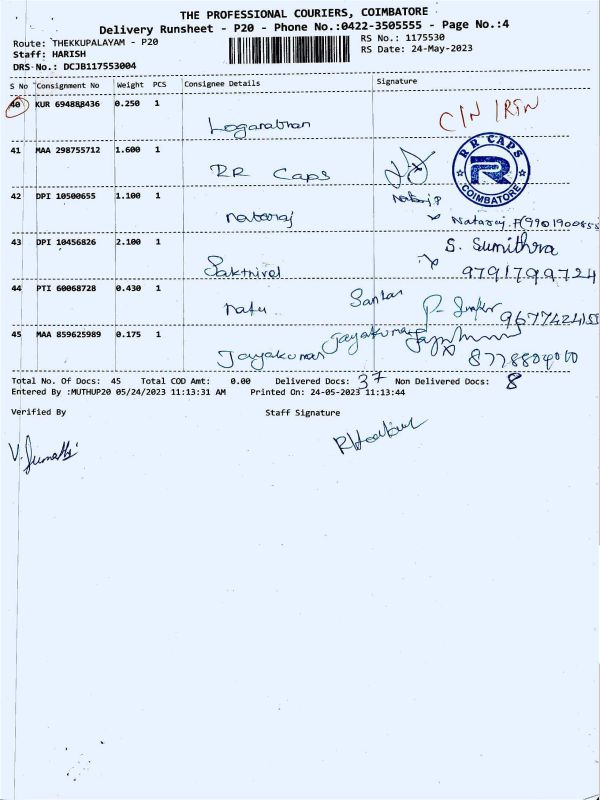 THE PROFESSIONAL COURIERS, COIMBATORE
Delivery Runsheet - P20 - Phone No.:0422-3505555 - Page No.:4
Route: THEKKUPALAYAM - P20
RS No.: 1175530
Staff: HARISH
RS Date: 24-May-2023
DRS No.: DCJB117553004
S No Consignment No Weight PCS Consignee Details Signature
40 KUR 694888436 0.250 1
Loganathan
41 MAA 298755712 1.600 1
RR Caps
RR CAPS
R
COIMBATORE
42 DPI 10500655 1.100 1
Nataraj P
Nataraj
43 DPI 10456826 2.100 1
S. Sumithra
Sakthivel
9791799724
44 PTI 60068728 0.430 1
Natu
45 MAA 859625989 0.175 1
Jayakumar
Jayakumar
8778804010
Total No. Of Docs: 45 Total COD Amt: 0.00 Delivered Docs: 37 Non Delivered Docs: 8
Entered By :MUTHUP20 05/24/2023 11:13:31 AM Printed On: 24-05-2023 11:13:44
Verified By Staff Signature